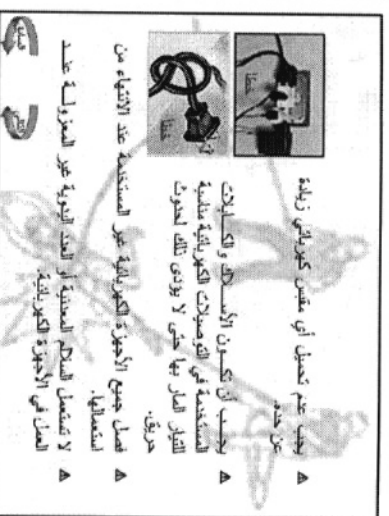 يجب عدم تحميل أي مقبس كهربائي زيادة
عن حده.
يجب أن تكون الأسلاك والكابلات
المستخدمة في التوصيلات الكهربائية مناسبة
للتيار المار بها حتى لا يؤدى ذلك لحدوث
حريق.
فصل جميع الأجهزة الكهربائية غير المستخدمة عند الانتهاء من
استعمالها.
لا تستعمل السلالم المعدنية أو العدد اليدوية غير المعزولة عند
العمل في الأجهزة الكهربائية.
خطأ
خطأ